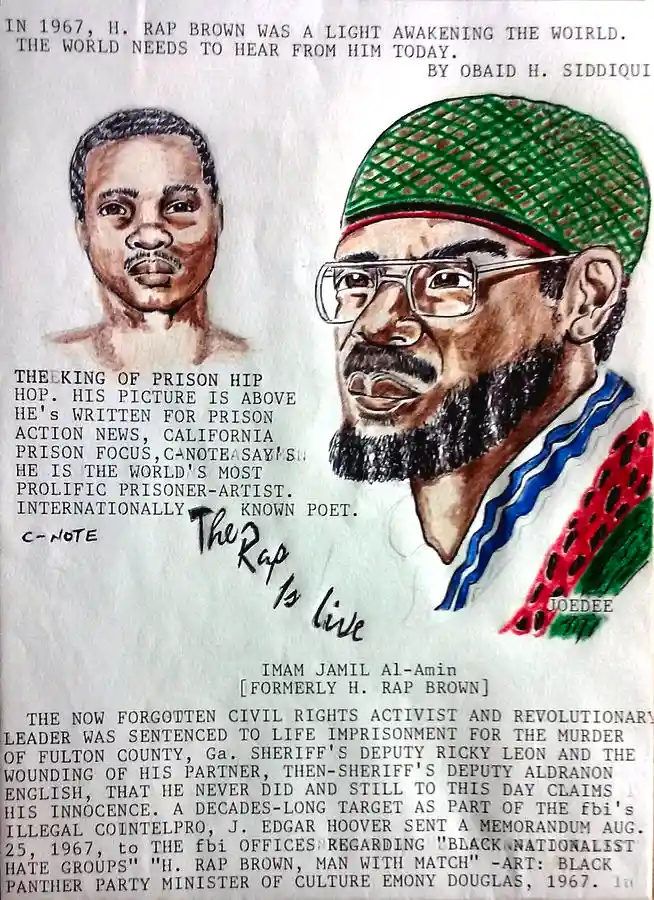 IN 1967, H. RAP BROWN WAS A LIGHT AWAKENING THE WOIRLD.
THE WORLD NEEDS TO HEAR FROM HIM TODAY.
BY OBAID H. SIDDIQUI
THE KING OF PRISON HIP
HOP. HIS PICTURE IS ABOVE
HE's WRITTEN FOR PRISON
ACTION NEWS, CALIFORNIA
PRISON FOCUS, C-NOTE SAY'S
HE IS THE WORLD'S MOST
PROLIFIC PRISONER-ARTIST.
INTERNATIONALLY KNOWN POET.
C-NOTE
The
Rap
Is live
JOEDEE
IMAM JAMIL Al-Amin
[FORMERLY H. RAP BROWN]
THE NOW FORGOTTEN CIVIL RIGHTS ACTIVIST AND REVOLUTIONARY
LEADER WAS SENTENCED TO LIFE IMPRISONMENT FOR THE MURDER
OF FULTON COUNTY, Ga. SHERIFF'S DEPUTY RICKY LEON AND THE
WOUNDING OF HIS PARTNER, THEN-SHERIFF'S DEPUTY ALDRANON
ENGLISH, THAT HE NEVER DID AND STILL TO THIS DAY CLAIMS
HIS INNOCENCE. A DECADES-LONG TARGET AS PART OF THE fbi's
ILLEGAL COINTELPRO, J. EDGAR HOOVER SENT A MEMORANDUM AUG.
25, 1967, to THE fbi OFFICES REGARDING "BLACK NATIONALIST
HATE GROUPS" "H. RAP BROWN, MAN WITH MATCH" -ART: BLACK
PANTHER PARTY MINISTER OF CULTURE EMONY DOUGLAS, 1967.